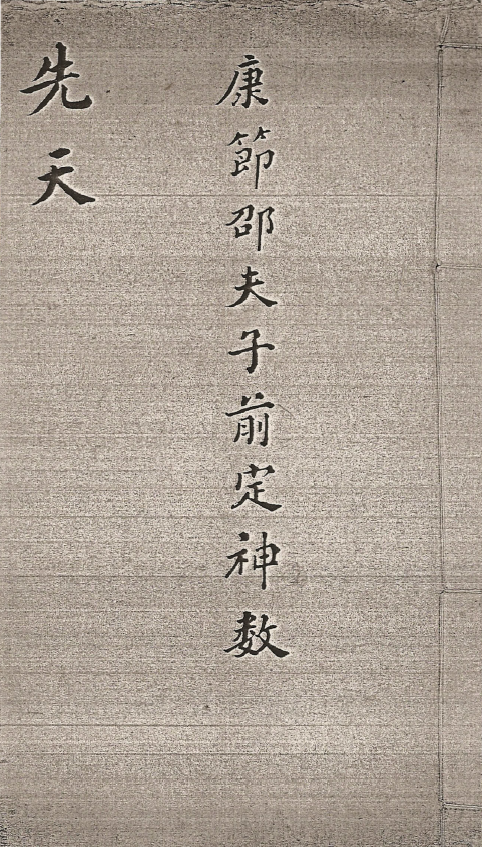 康節邵夫子前定神数
先天